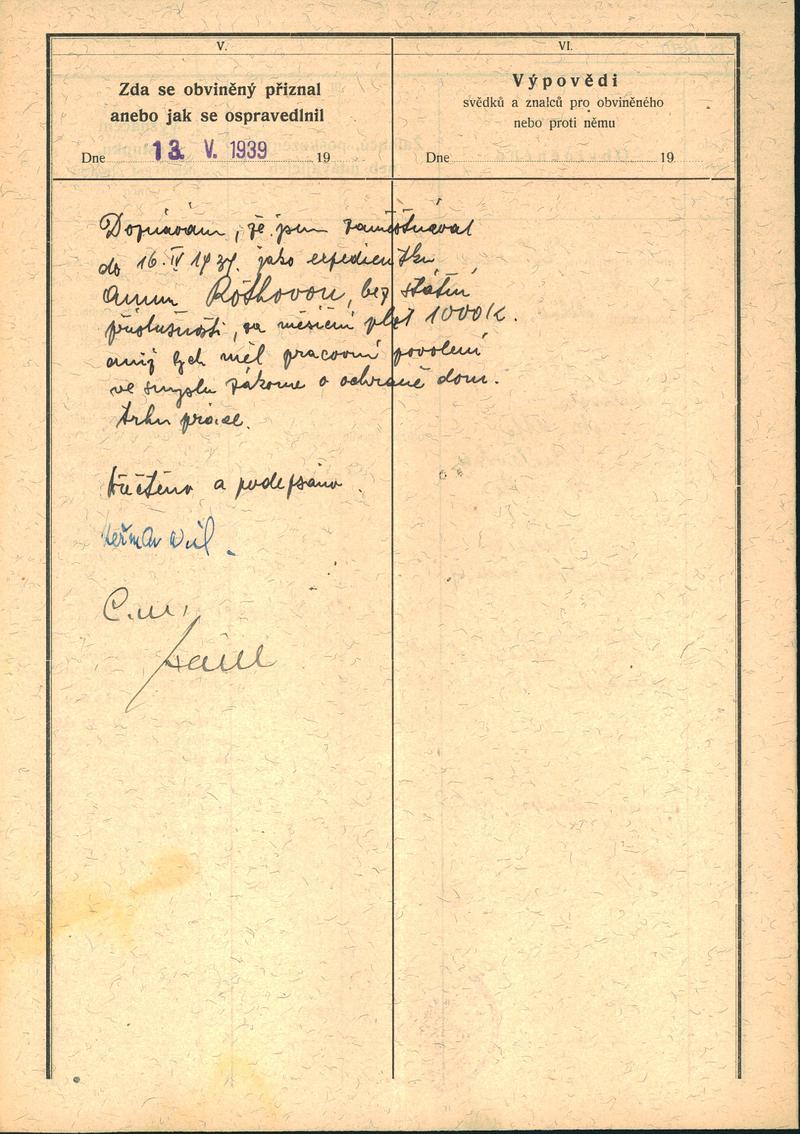 V.
Zda se obviněný přiznal
anebo jak se ospravedlnil
Dne 13. V. 1939 19
VI.
Výpovědi
svědků a znalců pro obviněného
nebo proti němu
Dne 19
Doznávám, že jsem zaměstnával
do 16. IV 1939. jako expedientku
Annu Róthovou, bez státní
příslušnosti, za měsíční plat 1000 K.
aniž bych měl pracovní povolení
ve smyslu zákona o ochraně dom.
trhu práce.
Přečteno a podepsáno.
Heřman
C.